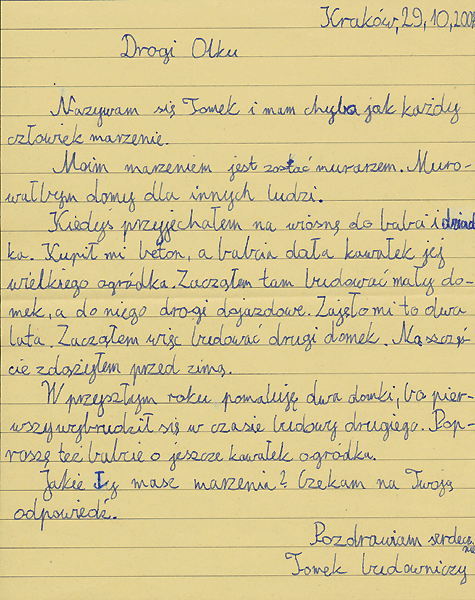 Kraków, 29.10.200
Drogi Olku
Nazywam się Tomek i mam chyba jak każdy
człowiek marzenie.
Moim marzeniem jest zostać murarzem. Muro-
wałbym domy dla innych ludzi.
Kiedyś przyjechałem na wiosnę do babci i dziad
ka. Kupił mi beton, a babcia dała kawałek jej
wielkiego ogródka. Zacząłem tam budować mały do-
mek, a do niego drogi dojazdowe. Zajęło mi to dwa
lata. Zacząłem więc budować drugi domek. Na szczę-
cie zdążyłem przed zimą.
W przyszłym roku pomaluję dwa domki, bo pier-
wszy wybrudził się w czasie budowy drugiego. Pop-
roszę też babcie o jeszcze kawałek ogródka.
Jakie Ty masz marzenie? Czekam na Twoją
odpowiedź.
Pozdrawiam serdecz
nie
Tomek budowniczy